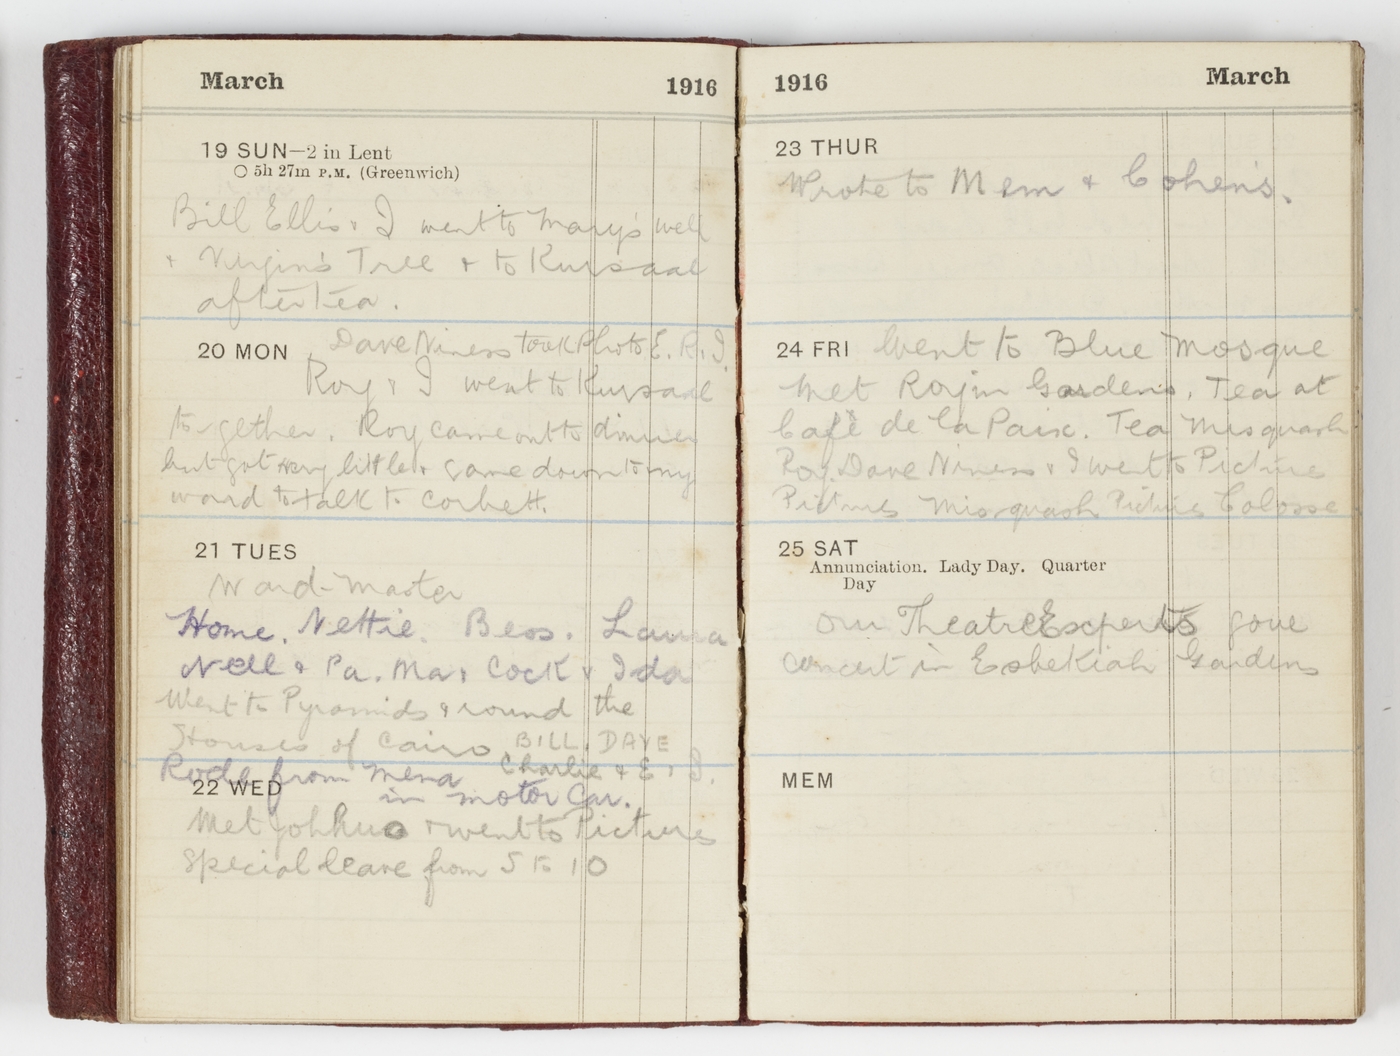 March 1916
19 SUN—2 in Lent
○ 5h 27m P.M. (Greenwich)
Bill Ellis & I went to Mary's well
& Virgin's Tree & to Kursaal
after tea.
20 MON Dave Niness took Photo E. R. I.
Roy & I went to Kursaal
to-gether. Roy came out to dinner
but got very little & came down to my
ward to talk to Corbett.
21 TUES
Ward-Master
Home. Nettie. Beos. Laura
Nell & Pa. Ma & Cock & Ida
Went to Pyramids & round the
Houses of Cairo BILL. DAVE
Charlie & E. & I.
Rode from Mena
in motor Car.
22 WED
Met & went to Pictures
Special leave from 5 to 10
1916 March
23 THUR
Wrote to Mem & Cohen's.
24 FRI Went to Blue Mosque
Met Roy in Gardens. Tea at
Cafè de la Paix. Tea Misquash
Roy. Dave Niness & I went to Picture
Pictures Misquash Pictures Colosse
25 SAT
Annunciation. Lady Day. Quarter
Day
Our Theatre Experts gave
concert in Esbekiah Gardens
MEM